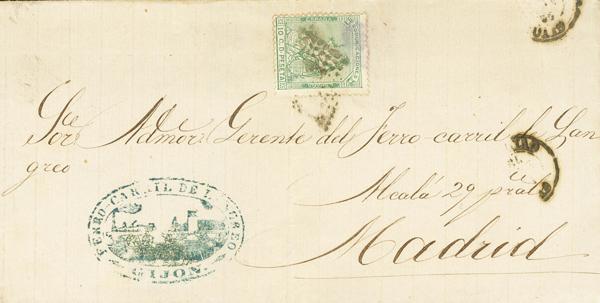 ESPAÑA
COMUNICACIONES
10 C. D. PESETA
Sor. Admor. Gerente del Ferro-carril de Lan
greo
Alcalá 29 pral
Madrid
FERRO-CARRIL DE LANGREO
GIJON